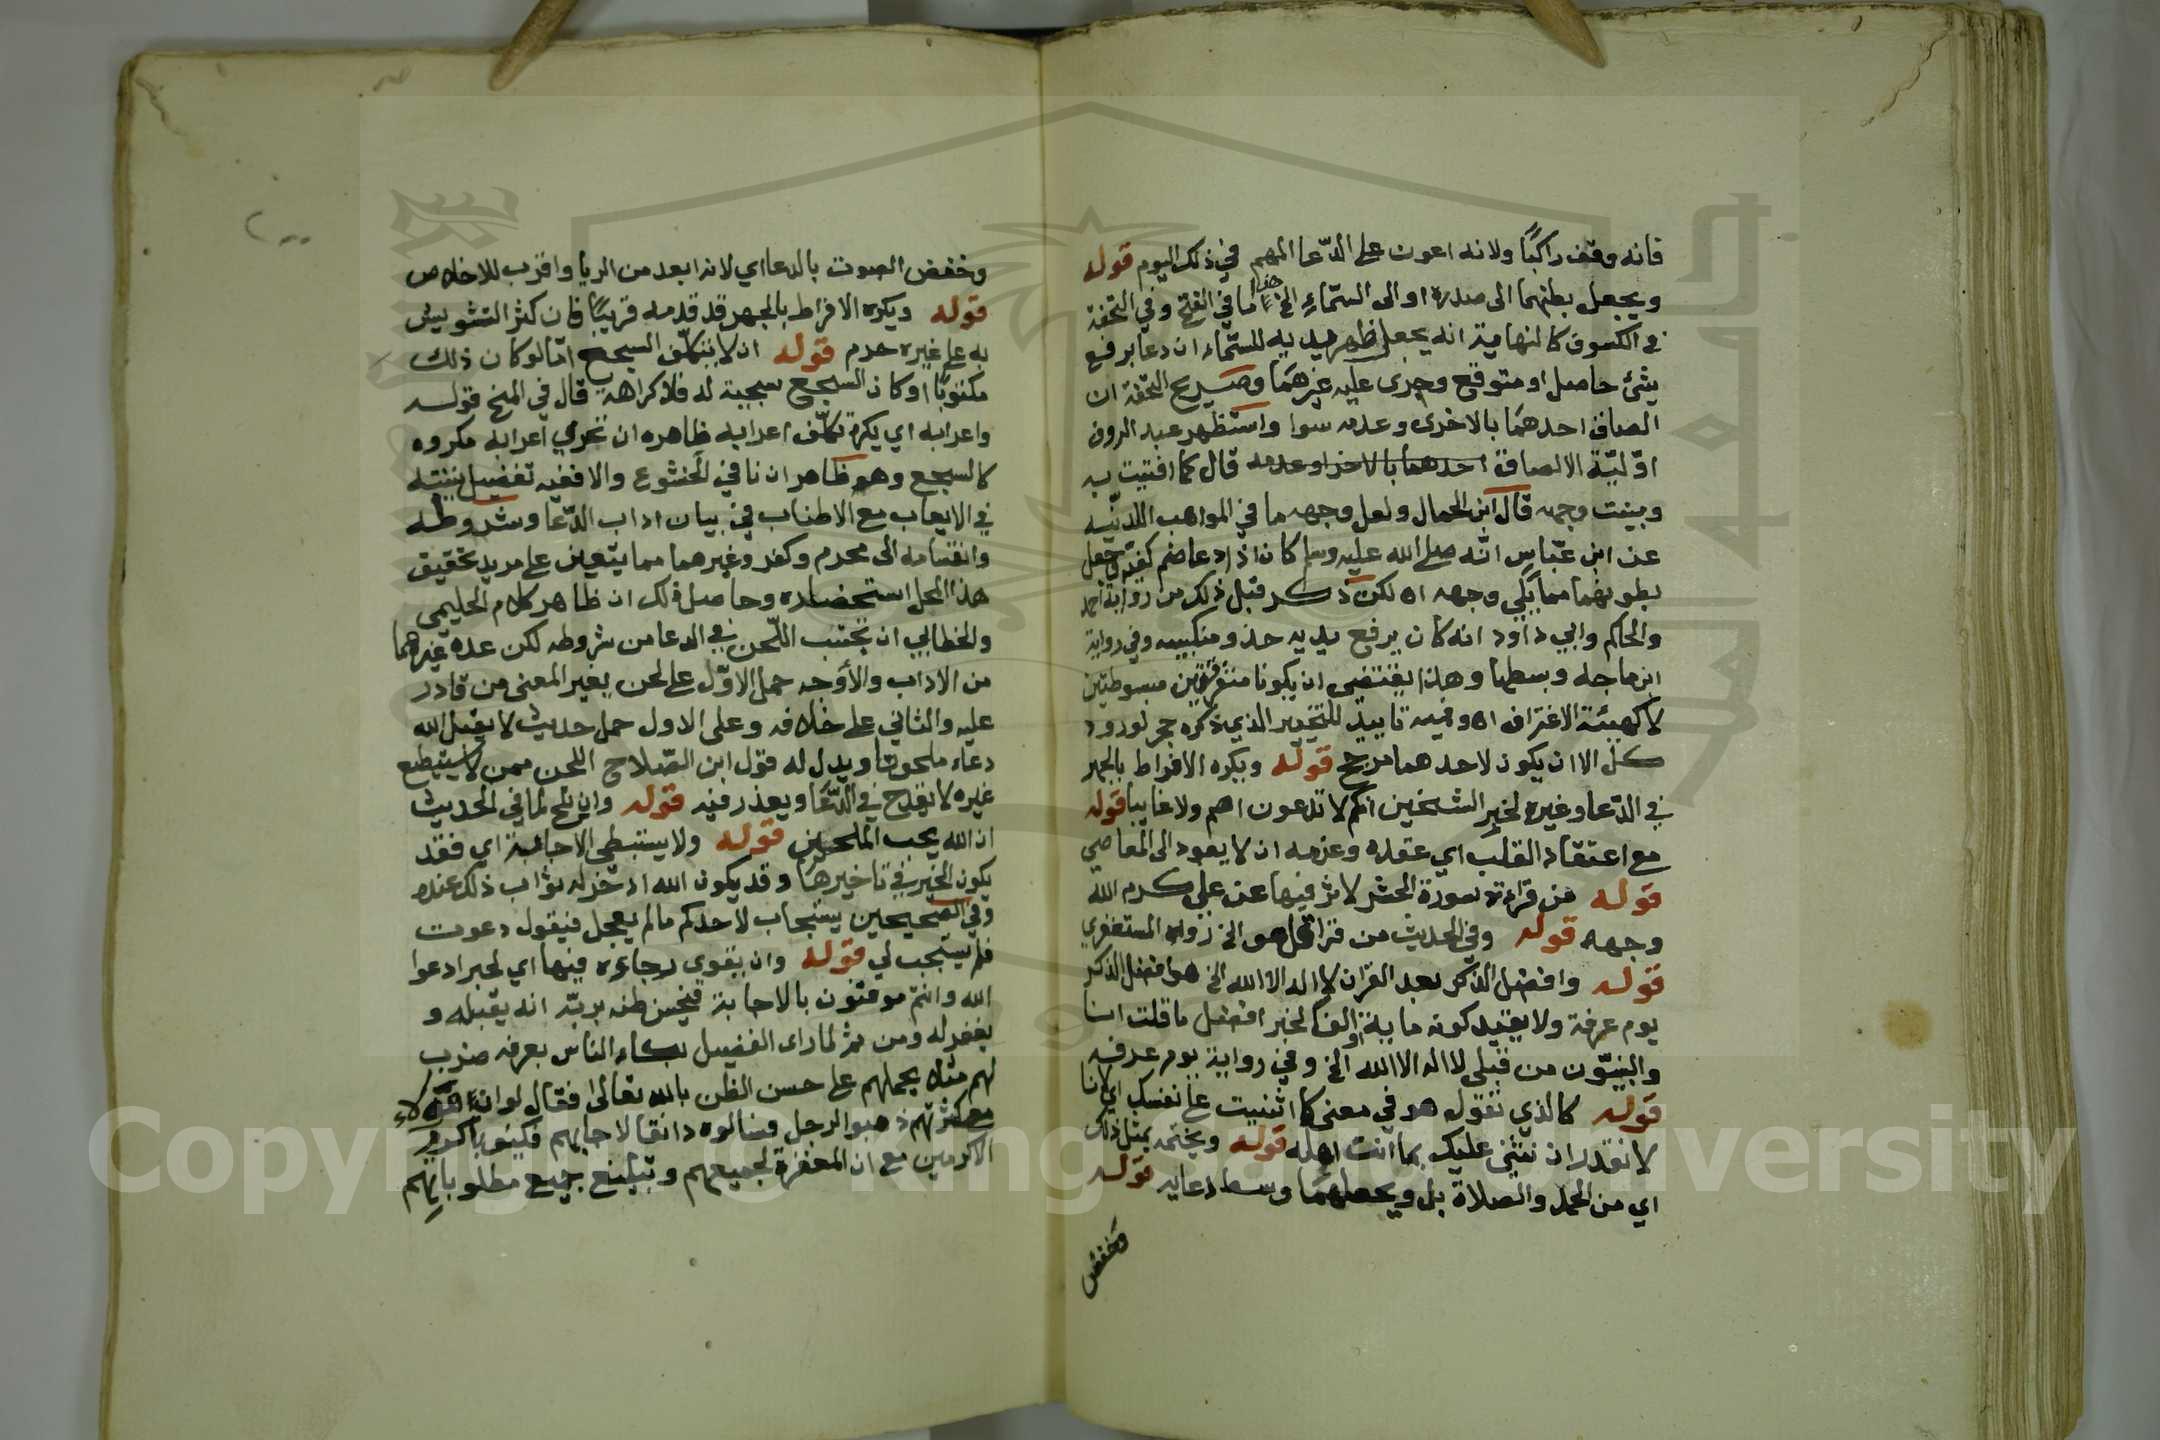 فانه وقف راكبًا ولانه اعون على الدّعا المهم في ذلك اليوم قوله
ويجعل بطنهما الى صدره او الى السّماء الخ هذا ما في الفتح وفي التحفة
في الكسوف كالنهاية انه يجعل ظهر يديه للسّماء ان دعا برفع
شئ حاصل او متوقع وجرى عليه غيرهما وصريح التحفة ان
الصاق احدهما بالاخرى وعدمه سوا واستظهر عبد الروف
اوّليّة الالصاق احدهما بالاخر اوعدمه قال كما افتيت به
وبينت وجهه قال ابن الجمال ولعل وجهه ما في المواهب اللدنيّه
عن ابن عبّاس انّه صلى الله عليه وسلم كان اذا دعا ضم كفيه وجعل
بطونهما مما يلي وجهه اه لكن ذكر قبل ذلك من رواية احمد
والحاكم وابي داود انه كان يرفع يديه حذو منكبيه وفي رواية
ابن ماجه وبسطها وهذا يقتضي ان يكونا متفرقتين مبسوطتين
لا كهيئة الاغتراف اه وفيه تاييد للتخيير الذي ذكره حجر لورود
كل الا ان يكون لاحدهما مرجح قوله ويكره الافراط بالجهر
في الدّعا وغيره لخبر الشيخين انكم لا تدعون اصم ولا غايبا قوله
مع اعتقاد القلب اي عقده وعزمه ان لا يعود الى المعاصي
قوله من قراءة سورة الحشر لاثر فيها عن علي كرم الله
وجهه قوله وفي الحديث من قرا قل هو الخ رواه المستغفري
قوله وافضل الذكر بعد القران لا اله الا الله الخ هو افضل الذكر
يوم عرفة ولا يقيد كونه ماية والف لخبر افضل ما قلت انا
والنبيّون من قبلي لا اله الا الله الخ وفي رواية يوم عرفه
قوله كالذي نقوله هو في معنى كما اثنيت على نفسك اي لانا
لا نقدر ان نثني عليك بما انت اهله قوله ويختمه بمثل ذلك
اي من الحمد والصلاة بل ويجعلهما وسط دعايه قوله
وخفض
وخفض الصوت بالدعا اي لانه ابعد من الريا واقرب للاخلاص
قوله ويكره الافراط بالجهر قد قدمه قريبًا فان كثر التشويش
به على غيره حرم قوله ان لا يتكلّف السجع امّا لو كان ذلك
مكتوبًا او كان السجع سجية له فلا كراهة قال في المنح قوله
واعرابه اي يكره تكلّف اعرابه ظاهره ان تحري اعرابه مكروه
كالسجع وهو ظاهر ان نافي الخشوع والا ففيه تفصيل بينته
في الايعاب مع الاطناب في بيان اداب الدّعا وشروطه
وانقسامه الى محرم وكفر وغيرهما مما يتعين على مريد تحقيق
هذا المحل استحضاره وحاصل ذلك ان ظاهر كلام الحليمي
والخطابي ان تجنب اللّحن في الدعا من شروطه لكن عده غيرهما
من الاداب والأوجه حمل الاوّل على لحن يغير المعنى من قادر
عليه والثاني على خلافه وعلى الاول حمل حديث لا يقبل الله
دعاء ملحونا ويدل له قول ابن الصّلاح اللحن ممن لا يستطيع
غيره لا يقدح في الدّعا ويعذر فيه قوله وان يلح لما في الحديث
ان الله يحب الملحين قوله ولا يستبطي الاجابة اي فقد
يكون الخير في تاخيرها وقد يكون الله ادّخر له ثواب ذلك عنده
وفي الصحيحين يستجاب لاحدكم ما لم يعجل فيقول دعوت
فلم يستجب لي قوله وان يقوي رجاءه فيها اي لخبر ادعوا
الله وانتم موقنون بالاجابة فيحسن ظنه بربّه انه يقبله و
يغفر له ومن ثم لما راى الفضيل بكاء الناس بعرفه ضرب
لهم مثلا يحملهم على حسن الظن بالله تعالى فقال لو ان هؤلاء
مع كثرتهم ذهبوا لرجل فسالوه دانقا لاجابهم فكيف باكرم
الاكرمين مع ان المغفرة لجميعهم وتبليغ جميع مطلوباتهم
Copyright © King Saud University